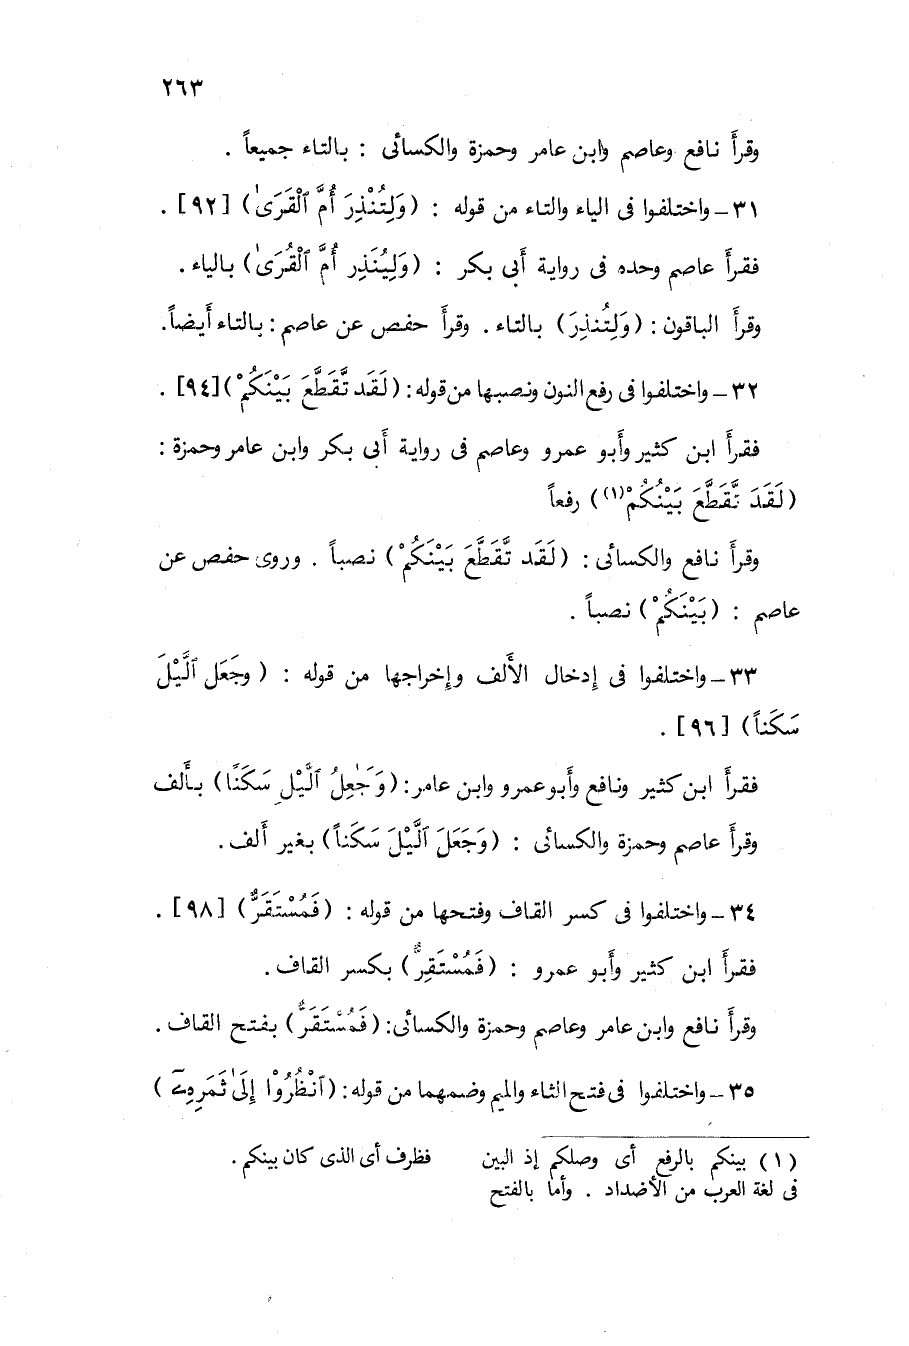 ٢٦٣
وقرأ نافع وعاصم وابن عامر وحمزة والكسائى : بالتاء جميعاً .
٣١ – واختلفوا فى الياء والتاء من قوله : ( وَلِتُنْذِرَ أُمَّ ٱلْقُرَىٰ ) [ ٩٢ ] .
فقرأ عاصم وحده فى رواية أبى بكر : ( وَلِيُنذِر أُمَّ ٱلْقُرَىٰ ) بالياء .
وقرأ الباقون : ( وَلِتُنذِرَ ) بالتاء . وقرأ حفص عن عاصم : بالتاء أيضاً.
٣٢ – واختلفوا فى رفع النون ونصبها من قوله : ( لَقَد تَّقَطَّعَ بَيْنَكُمْ ) [ ٩٤ ] .
فقرأ ابن كثير وأبو عمرو وعاصم فى رواية أبى بكر وابن عامر وحمزة :
( لَقَدَ تَّقَطَّعَ بَيْنُكُمْ (١) ) رفعاً
وقرأ نافع والكسائى : ( لَقَد تَّقَطَّعَ بَيْنَكُمْ ) نصباً . وروى حفص عن
عاصم : ( بَيْنَكُمْ ) نصباً .
٣٣ – واختلفوا فى إدخال الألف وإخراجها من قوله : ( وجَعَل ٱلَّيْلَ
سَكَناً ) [ ٩٦ ] .
فقرأ ابن كثير ونافع وأبو عمرو وابن عامر : ( وَجَٰعِلُ ٱلَّيْلِ سَكَنًا ) بألف
وقرأ عاصم وحمزة والكسائى : ( وَجَعَلَ ٱلَّيْلَ سَكَناً ) بغير ألف .
٣٤ – واختلفوا فى كسر القاف وفتحها من قوله : ( فَمُسْتَقَرٌّ ) [ ٩٨ ] .
فقرأ ابن كثير وأبو عمرو : ( فَمُسْتَقِرٌّ ) بكسر القاف .
وقرأ نافع وابن عامر وعاصم وحمزة والكسائى : ( فَمُسْتَقَرٌّ ) بفتح القاف .
٣٥ – واختلفوا فى فتح الثاء والميم وضمهما من قوله : ( ٱنْظُرُوْا إِلَىٰ ثَمَرِهِۦٓ )
( ١ ) بينكم بالرفع أى وصلكم إذ البين
فى لغة العرب من الأضداد . وأما بالفتح
فظرف أى الذى كان بينكم .